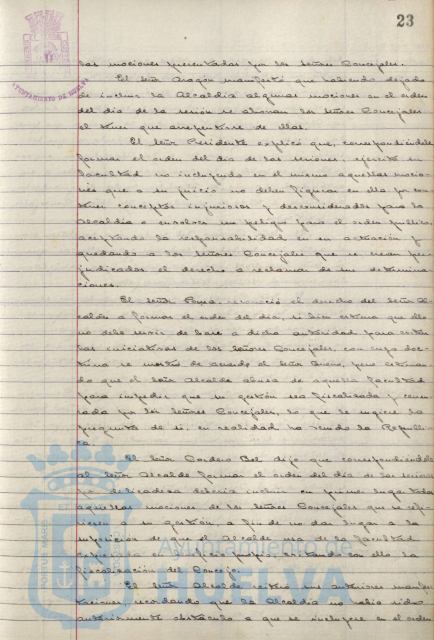 23
AYUNTAMIENTO DE HUELVA
las mociones presentadas por los Señores Concejales.
El Señor Aragón manifestó que habiendo dejado
de incluir la Alcaldía algunas mociones en el orden
del día de la sesión se ahorran los Señores Concejales
el tener que arrepentirse de ellas.
El Señor Presidente explicó que, correspondiéndole
formar el orden del día de las sesiones, ejercita su
facultad no incluyendo en el mismo aquellas mocio-
nes que a su juicio no deben figurar en ella por con-
tener conceptos injuriosos y desconsiderados para la
Alcaldía o envolver un peligro para el orden público,
aceptando la responsabilidad en su actuación y
quedando a los Señores Concejales que se crean per-
judicados el derecho a reclamar de sus determina-
ciones.
El Señor reconoció el derecho del Señor Al-
calde a formar el orden del día, si bien estima que ello
no debe servir de base a dicha autoridad para
las iniciativas de los Señores Concejales, con cuya doc-
trina se mostró de acuerdo el Señor pero estiman-
do que el Señor Alcalde abusa de aquella facultad
para impedir que su gestión sea fiscalizada y censu-
rada por los Señores Concejales, lo que le sugiere la
pregunta de si, en realidad, ha venido la Repúbli-
ca.
El Señor Cordero Bel dijo que correspondiéndole
al Señor Alcalde formar el orden del día de las sesiones
por delicadeza debería incluir en primer lugar todas
aquellas mociones de los Señores Concejales que se refi-
rieran a su gestión, a fin de no dar lugar a la
suposición de que el Alcalde usa de la facultad
en beneficio propio, evitando con ello la
fiscalización del Concejo.
El Señor Alcalde reiteró sus anteriores manifes-
taciones recordando que la Alcaldía no había sido
anteriormente obstáculo a que se incluyese en el orden
PORTUS MARIS
ET
Ayuntamiento de
HUELVA